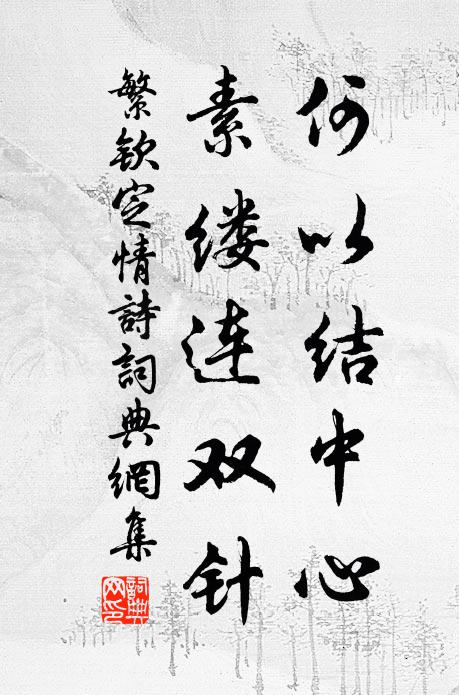 何以结中心
素缕连双针
繁欽定情詩詞典網集
詞典